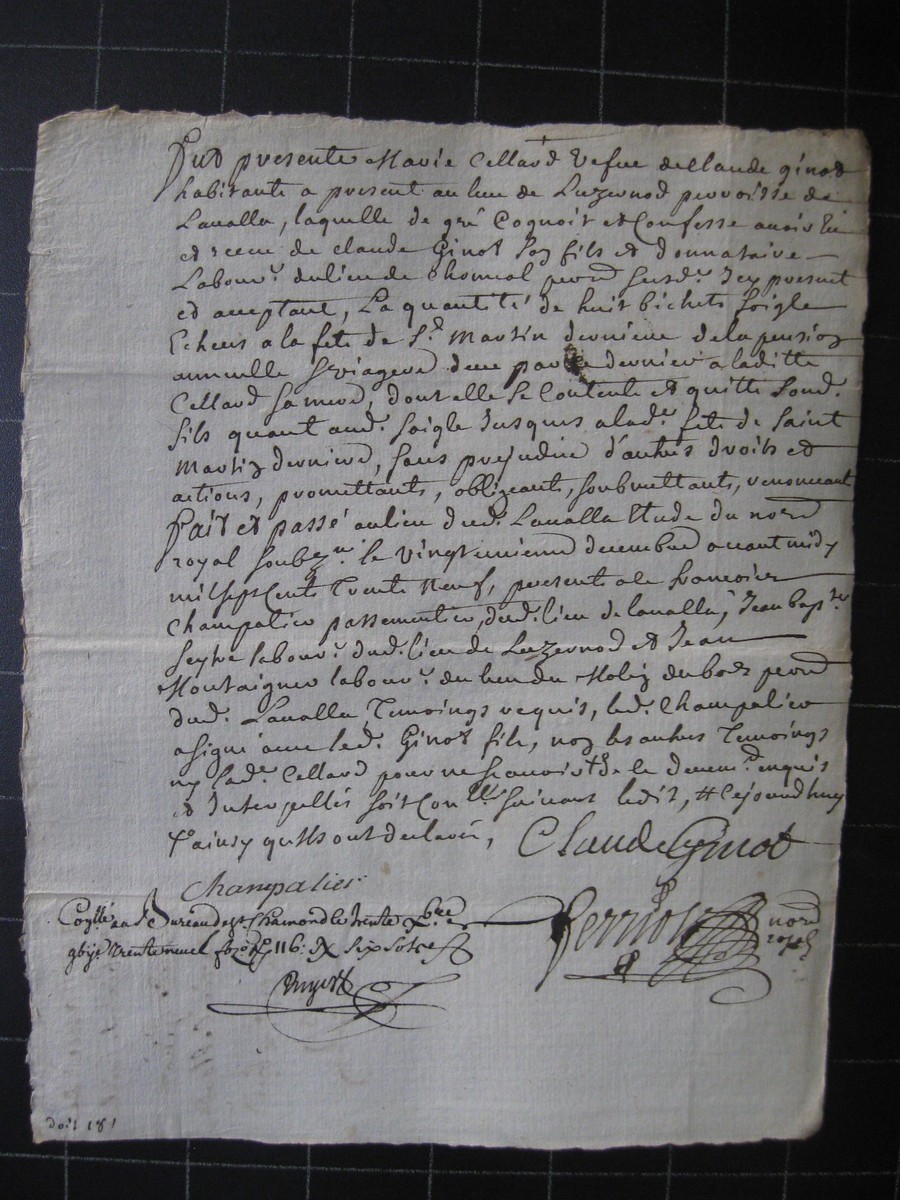 Fut presente Marie Cellard vefve de Claude Ginod
habitante a present au lieu de Luzernod perroisse de
Lavalla, laquelle de gré Cognoit et Confesse avoir Eu
et receu de Claude Ginot son fils et donnataire
Labour.r du lieu de Chomeal susd.e Icy present
et acceptant, La quantité de huit bichets soigle
Echeus a la fete de S.t Martin derniere de la pension
annuelle & viagere deue par ce dernier a laditte
Cellard sa mere, dont elle se Contente et quitte sond.
fils quant aud. soigle Jusques a lad.e fete de saint
Martin derniere, sans prejudice d'autres droits et
actions, promettants, obligeants, soubmettants, renonceant
Fait et passé au lieu dud. Lavalla Etude du nore
royal soubz.né le vingt unieme decembre avant midy
mil sept Cents Trente Neuf, presents a ce Francois
Champalier passementier, dud. lieu de Lavalla, Jean bap.te
Seyve labour.r dud. lieu de Luzernod et Jean
Montaigner labour.r du lieu du Molin du bost
dud. Lavalla Temoings requis, led. Champalier
a signé avec led. Ginot fils, non les autres Temoings
ny lad.e Cellard pour ne scavoir de ce deuem.t enquis
et Interpellés soit Con.llé suivant ledit, # Cejourdhuy
# ainsy qu'ils ont declaré, Claude Ginot
Champalier
Conllé au Bureau de St Chamond le trente Xbre
gbije trente neuf fo 116. Rx six sols
Perriolat nore
royal
doit 18 s